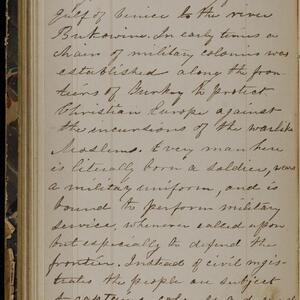 gulf of Venice to the river
Bukowine. In early times a
chain of military colonies was
established along the fron-
tiers of Turkey to protect
Christian Europe against
the incursions of the warlike
Moslems. Every man here
is literally born a soldier, wears
a military uniform, and is
bound to perform military
service, whenever called upon
but especially to defend the
frontier. Instead of civil magis-
trates the people are subject
to captains